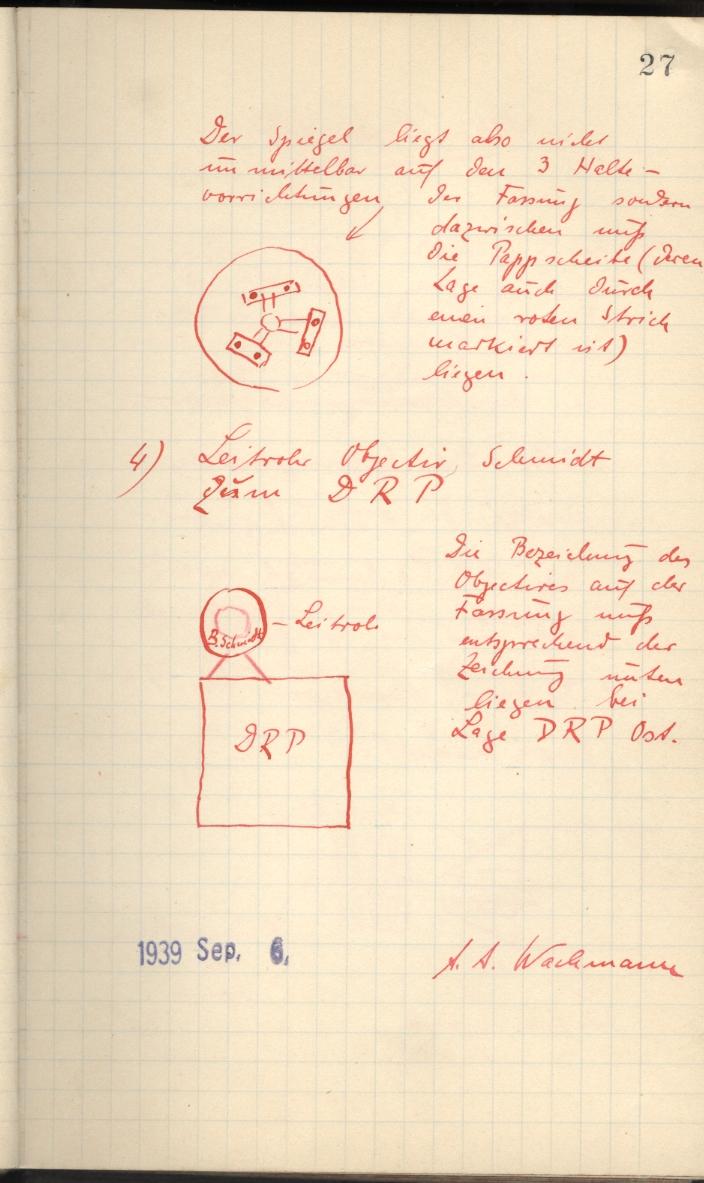 27
Der Spiegel liegt also nicht
unmittelbar auf den 3 Halte-
vorrichtungen der Fassung sondern
dazwischen muß
die Pappscheibe (deren
Lage auch durch
einen roten Strich
markiert ist)
liegen.
4) Leitrohr Objectiv Schmidt
zum DRP
Die Bezeichnung des
Objectives auf der
Fassung muß
entsprechend der
Zeichnung unten
liegen bei
Lage DRP Ost.
B. Schmidt
- Leitrohr
DRP
1939 Sep. 6.
A. A. Wachmann